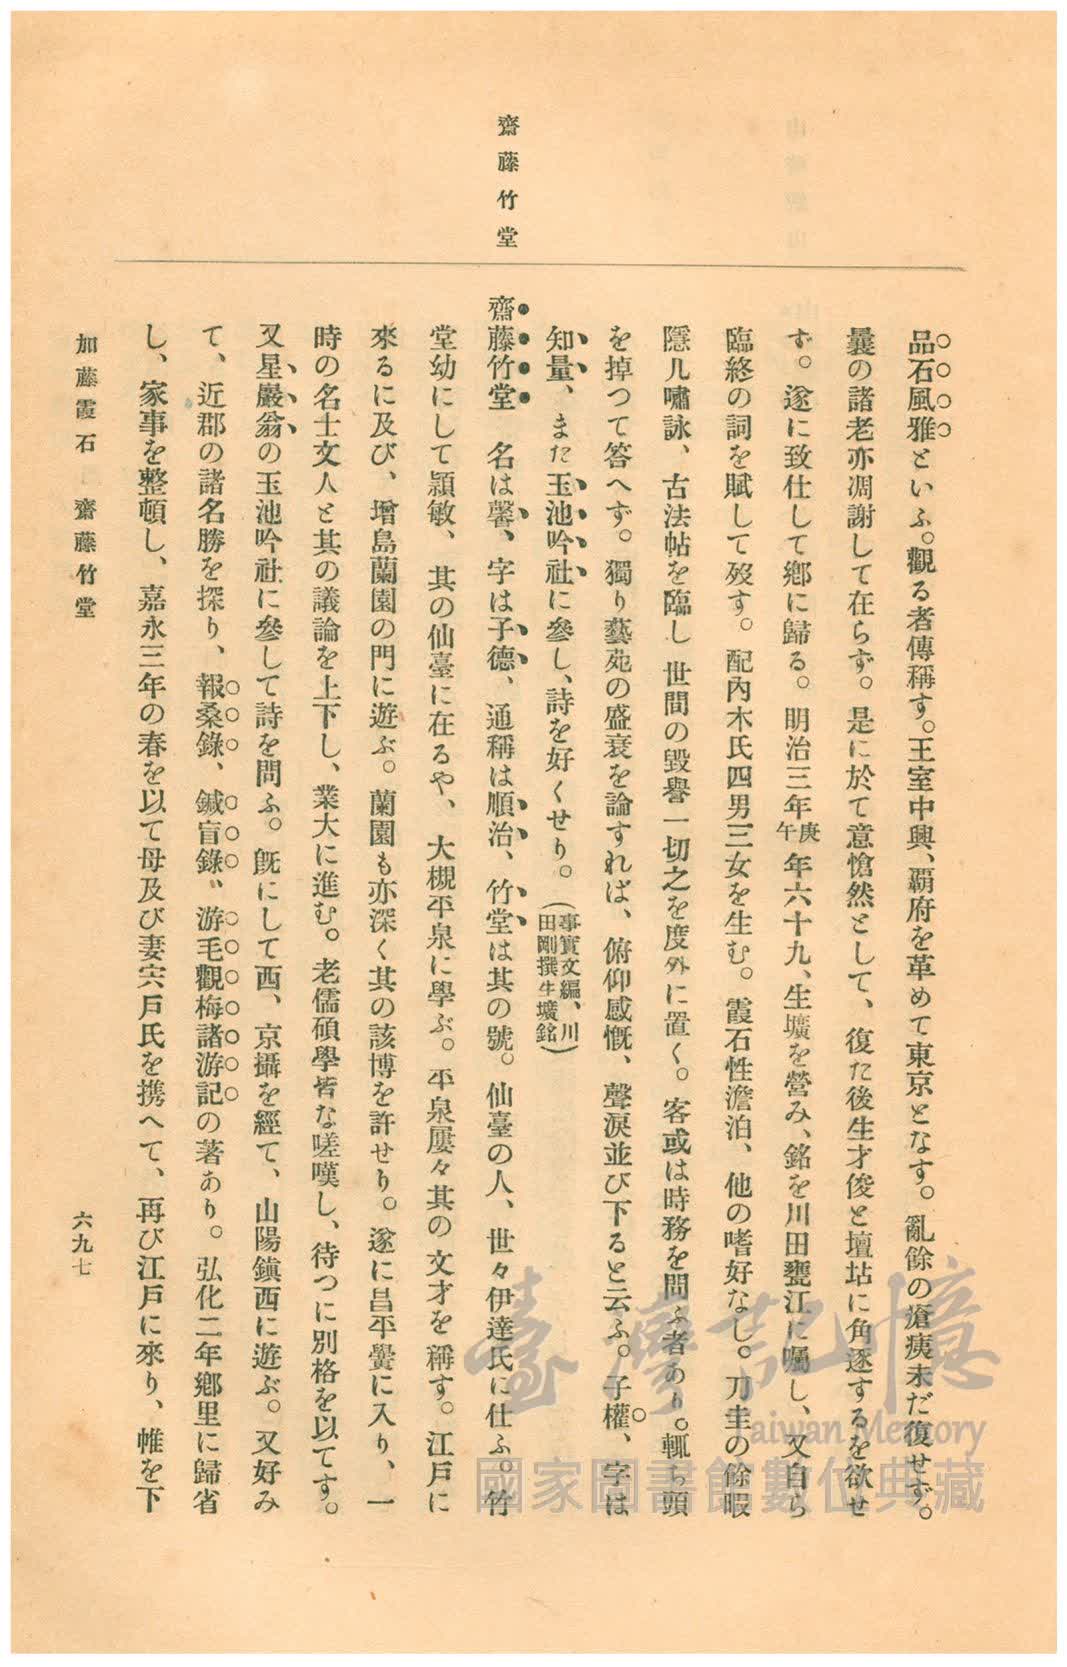 齋藤竹堂
品石風雅といふ。觀る者傳稱す。王室中興、覇府を革めて東京となす。亂餘の瘡痍未だ復せず。
曩の諸老亦凋謝して在らず。是に於て意愴然として、復た後生才俊と壇坫に角逐するを欲せ
ず。遂に致仕して鄕に歸る。明治三年庚午年六十九、生壙を營み、銘を川田甕江に囑し、又自ら
臨終の詞を賦して歿す。配內木氏四男三女を生む。霞石性澹泊、他の嗜好なし。刀圭の餘暇
隱几嘯詠、古法帖を臨し世間の毀譽一切之を度外に置く。客或は時務を問ふ者あり。輒ち頭
を掉つて答へず。獨り藝苑の盛衰を論ずれば、俯仰感慨、聲淚並び下ると云ふ。子權、字は
知量、また玉池吟社に參し、詩を好くせり。(事實文編、川田剛撰生壙銘)
齋藤竹堂 名は馨、字は子德、通稱は順治、竹堂は其の號。仙臺の人、世々伊達氏に仕ふ。竹
堂幼にして頴敏、其の仙臺に在るや、大槻平泉に學ぶ。平泉屢々其の文才を稱す。江戶に
來るに及び、增島蘭園の門に遊ぶ。蘭園も亦深く其の該博を許せり。遂に昌平黌に入り、一
時の名士文人と其の議論を上下し、業大に進む。老儒碩學皆な嗟嘆し、待つに別格を以てす。
又星巖翁の玉池吟社に參して詩を問ふ。旣にして西、京攝を經て、山陽鎭西に遊ぶ。又好み
て、近郡の諸名勝を探り、報桑錄、鍼盲錄、游毛觀梅諸游記の著あり。弘化二年鄕里に歸省
し、家事を整頓し、嘉永三年の春を以て母及び妻宍戶氏を携へて、再び江戶に來り、帷を下
加藤霞石 齋藤竹堂
六九七
臺灣記憶
Taiwan Memory
國家圖書館數位典藏